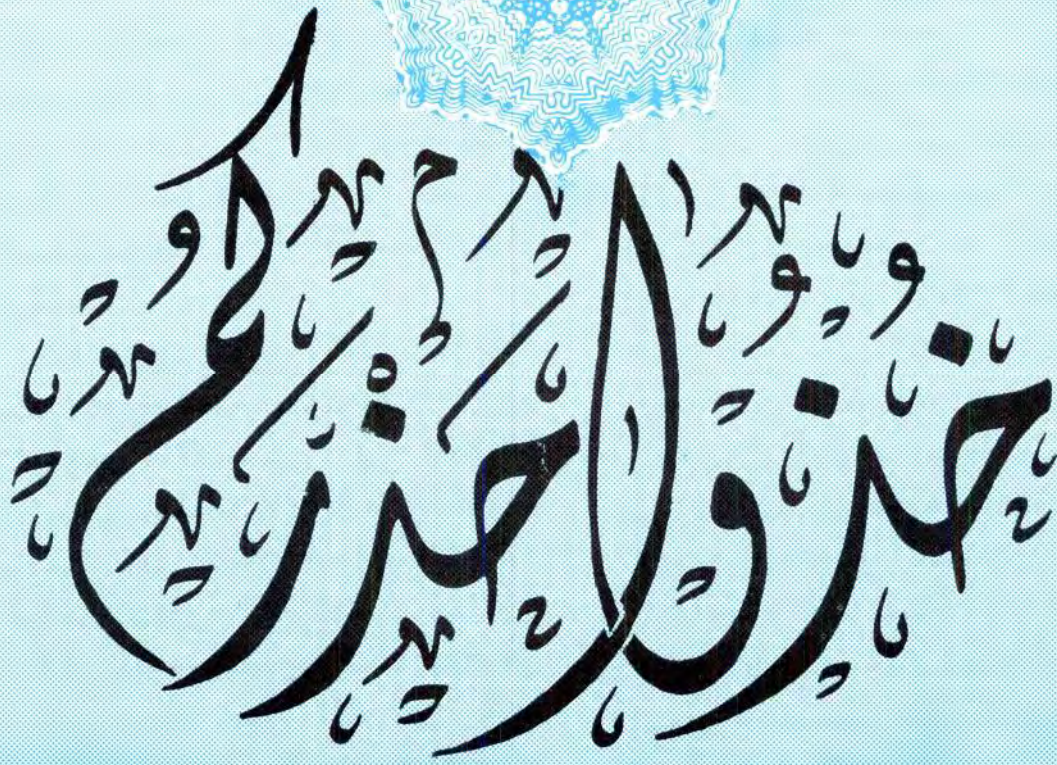 خُذُوا حِذْرَكُمْ